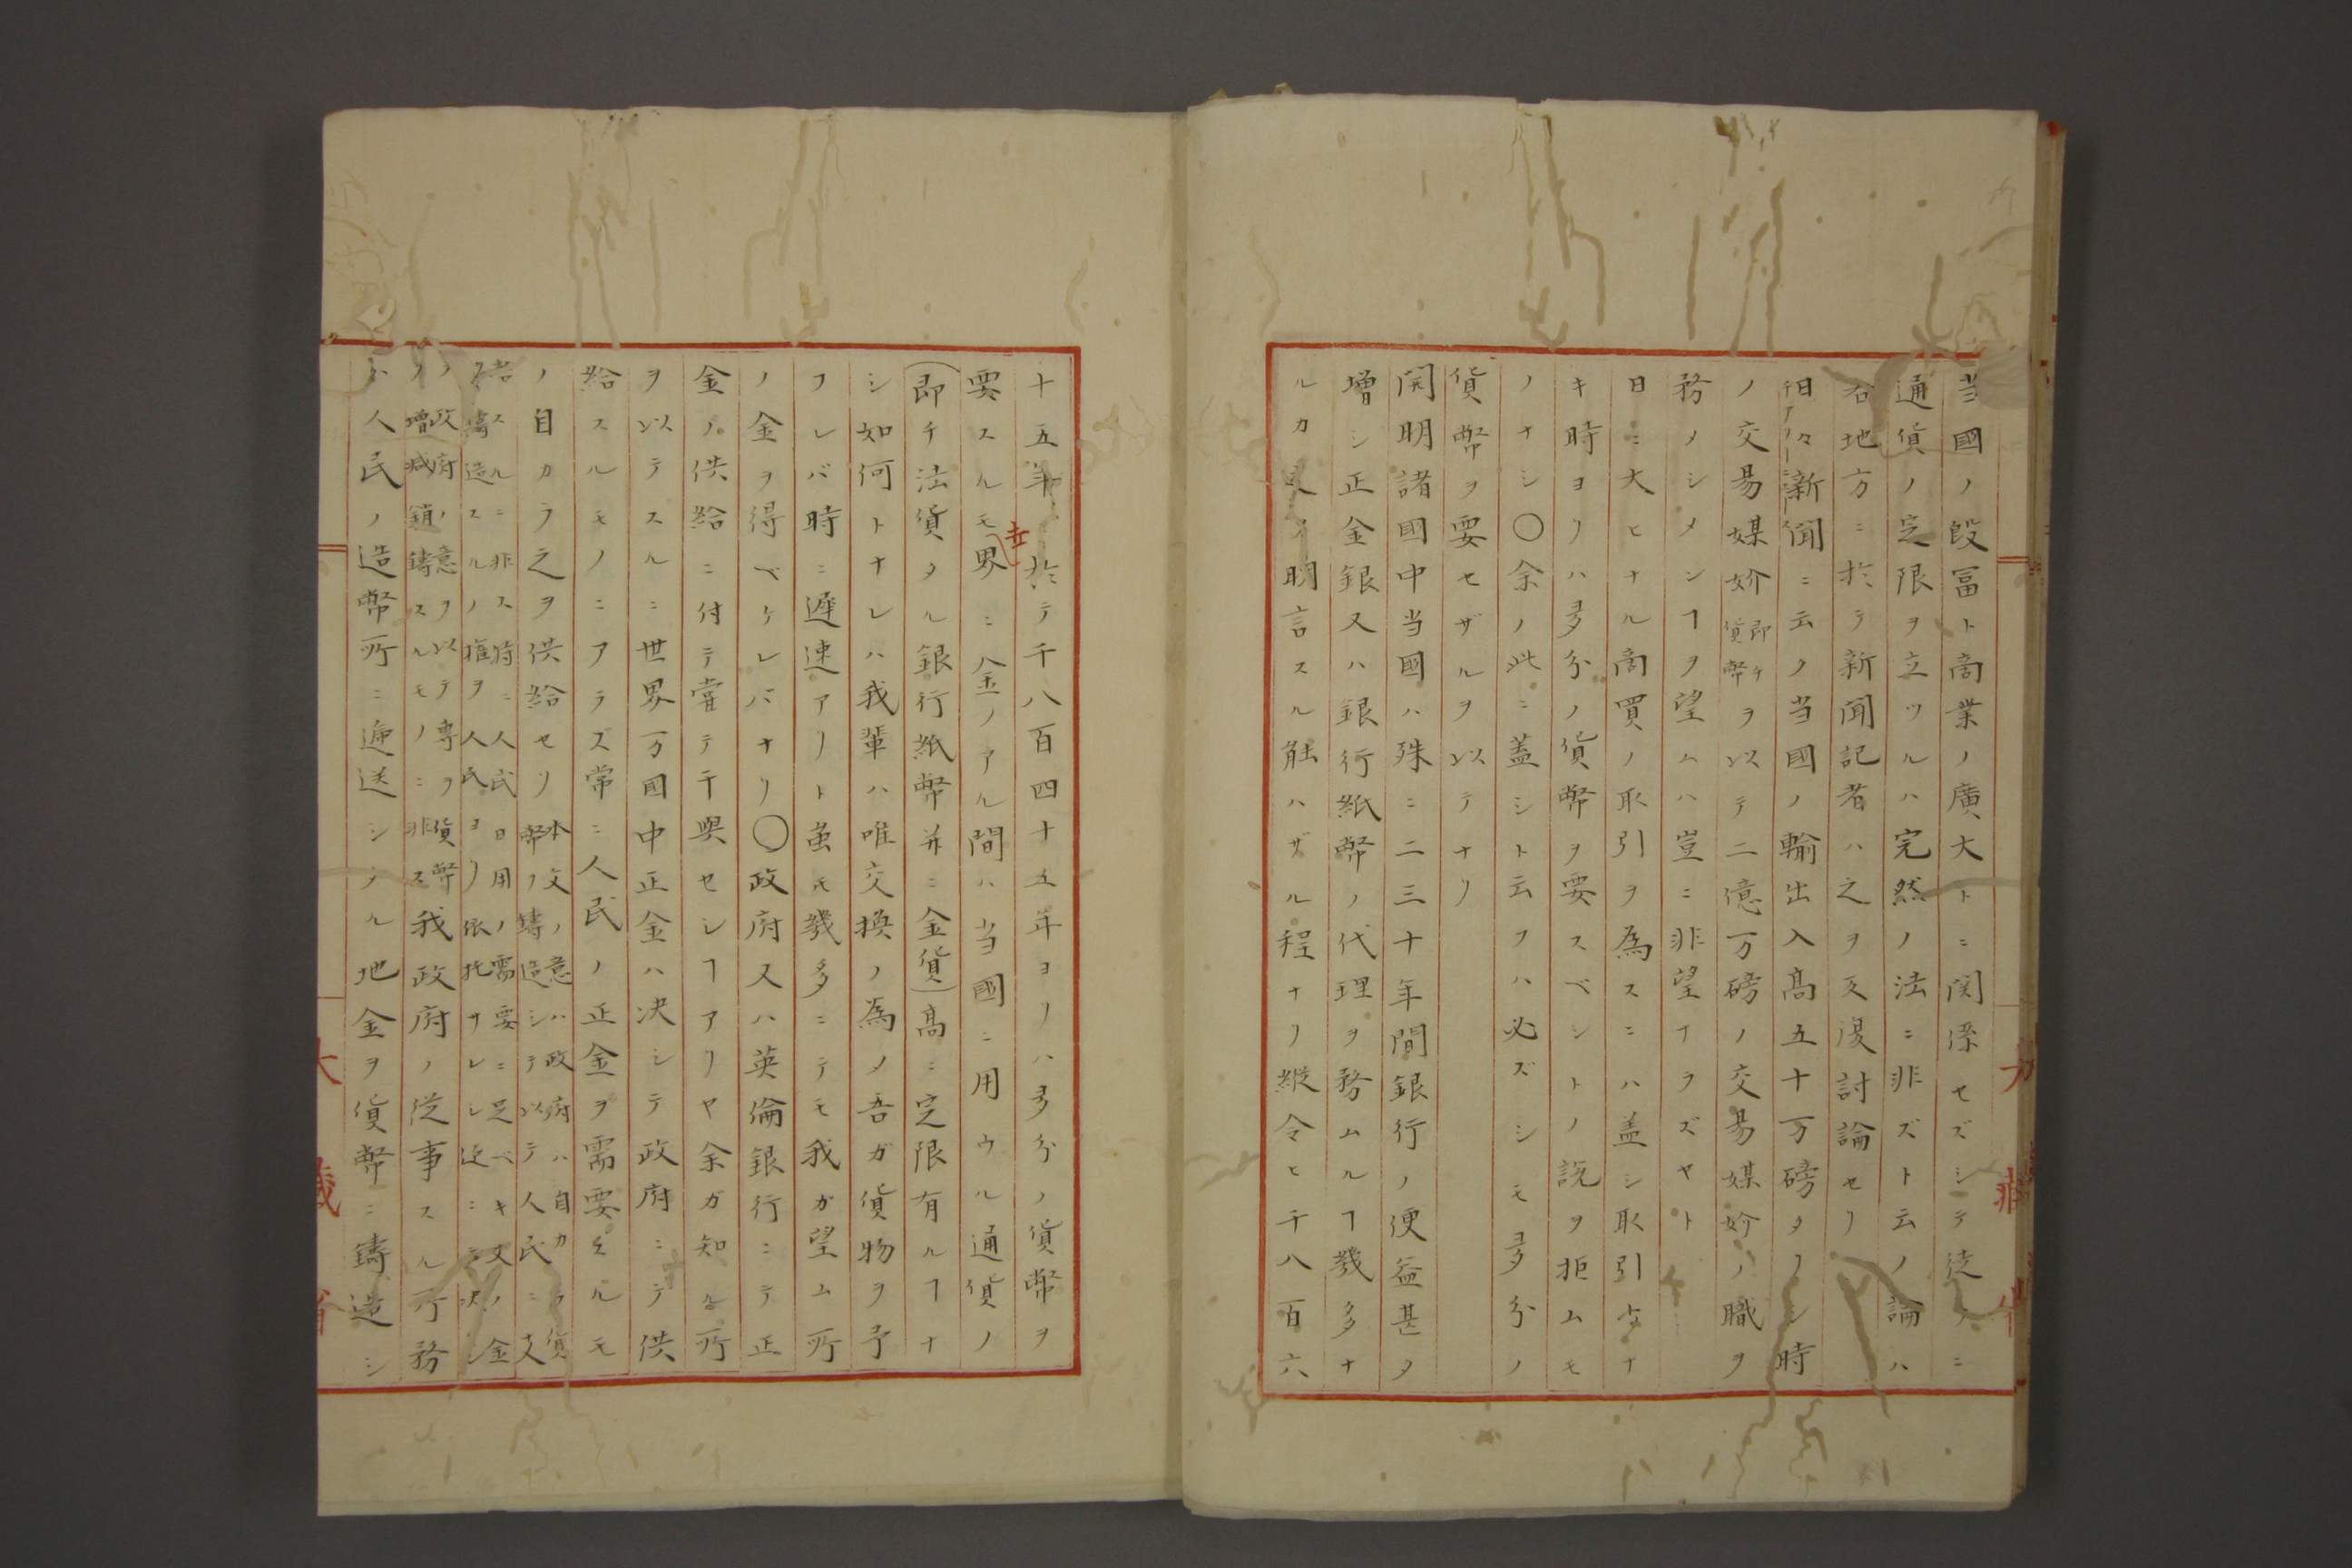 当國ノ殷冨ト商業ノ廣大トニ関係セズシテ徒ラニ
通貨ノ定限ヲ立ツルハ完然ノ法ニ非ズト云ノ論ハ
右地方ニ於テ新聞記者ハ之ヲ反復討論セリ
日々新聞ニ云ノ当國ノ輸出入高五十万磅タリシ時
ノ交易媒妎即チ貨幣ヲ以テ二億万磅ノ交易媒妎ノ職ヲ
務メシメンヿヲ望ムハ豈ニ非望ナラズヤト
日ニ大ヒナル商買ノ取引ヲ為スニハ盖シ取引少ナ
キ時ヨリハ多分ノ貨幣ヲ要スベシトノ説ヲ拒ムモ
ノナシ〇余ノ此ニ盖シト云フハ必ズシモ多分ノ
貨幣ヲ要セザルヲ以テナリ
開明諸國中当國ハ殊ニ二三十年間銀行ノ便益甚タ
増シ正金銀又ハ銀行紙幣ノ代理ヲ務ムルヿ幾多ナ
ルカ之ヲ明言スル能ハザル程ナリ縦令ヒ千八百六
十五年ニ於テ千八百四十五年ヨリハ多分ノ貨幣ヲ
要スルモ世界ニ金ノアル間ハ当國ニ用ウル通貨ノ
(即チ法貨タル銀行紙幣并ニ金貨)高ニ定限有ルヿナ
シ如何トナレハ我輩ハ唯交換ノ為メ吾ガ貨物ヲ予
フレバ時ニ遲速アリト虽モ幾多ニテモ我ガ望ム所
ノ金ヲ得ベケレバナリ〇政府又ハ英倫銀行ニテ正
金ノ供給ニ付テ甞テ干與セシヿアリヤ余ガ知ル所
ヲ以テスルニ世界万國中正金ハ决シテ政府ニテ供
給スルモノニアラズ常ニ人民ノ正金ヲ需要スルモ
ノ自カラ之ヲ供給セリ本文ノ意ハ政府ハ自カラ貨幣ノ鋳造シテ以テ人民ニ支
給スルニ非ス時ニ人民日用ノ需要ニ足ベキ丈ノ金ヲ鋳造スルノ権ヲ人民ヨリ依托サレシ迄ニテ决シ
ノ政府ノ意ヲ以テ専ラ貨幣ノ増減鎖鋳スルモノニ非ス我政府ノ従事スル所務
ハ人民ノ造幣所ニ逓送シタル地金ヲ貨幣ニ鋳造シ
大蔵省